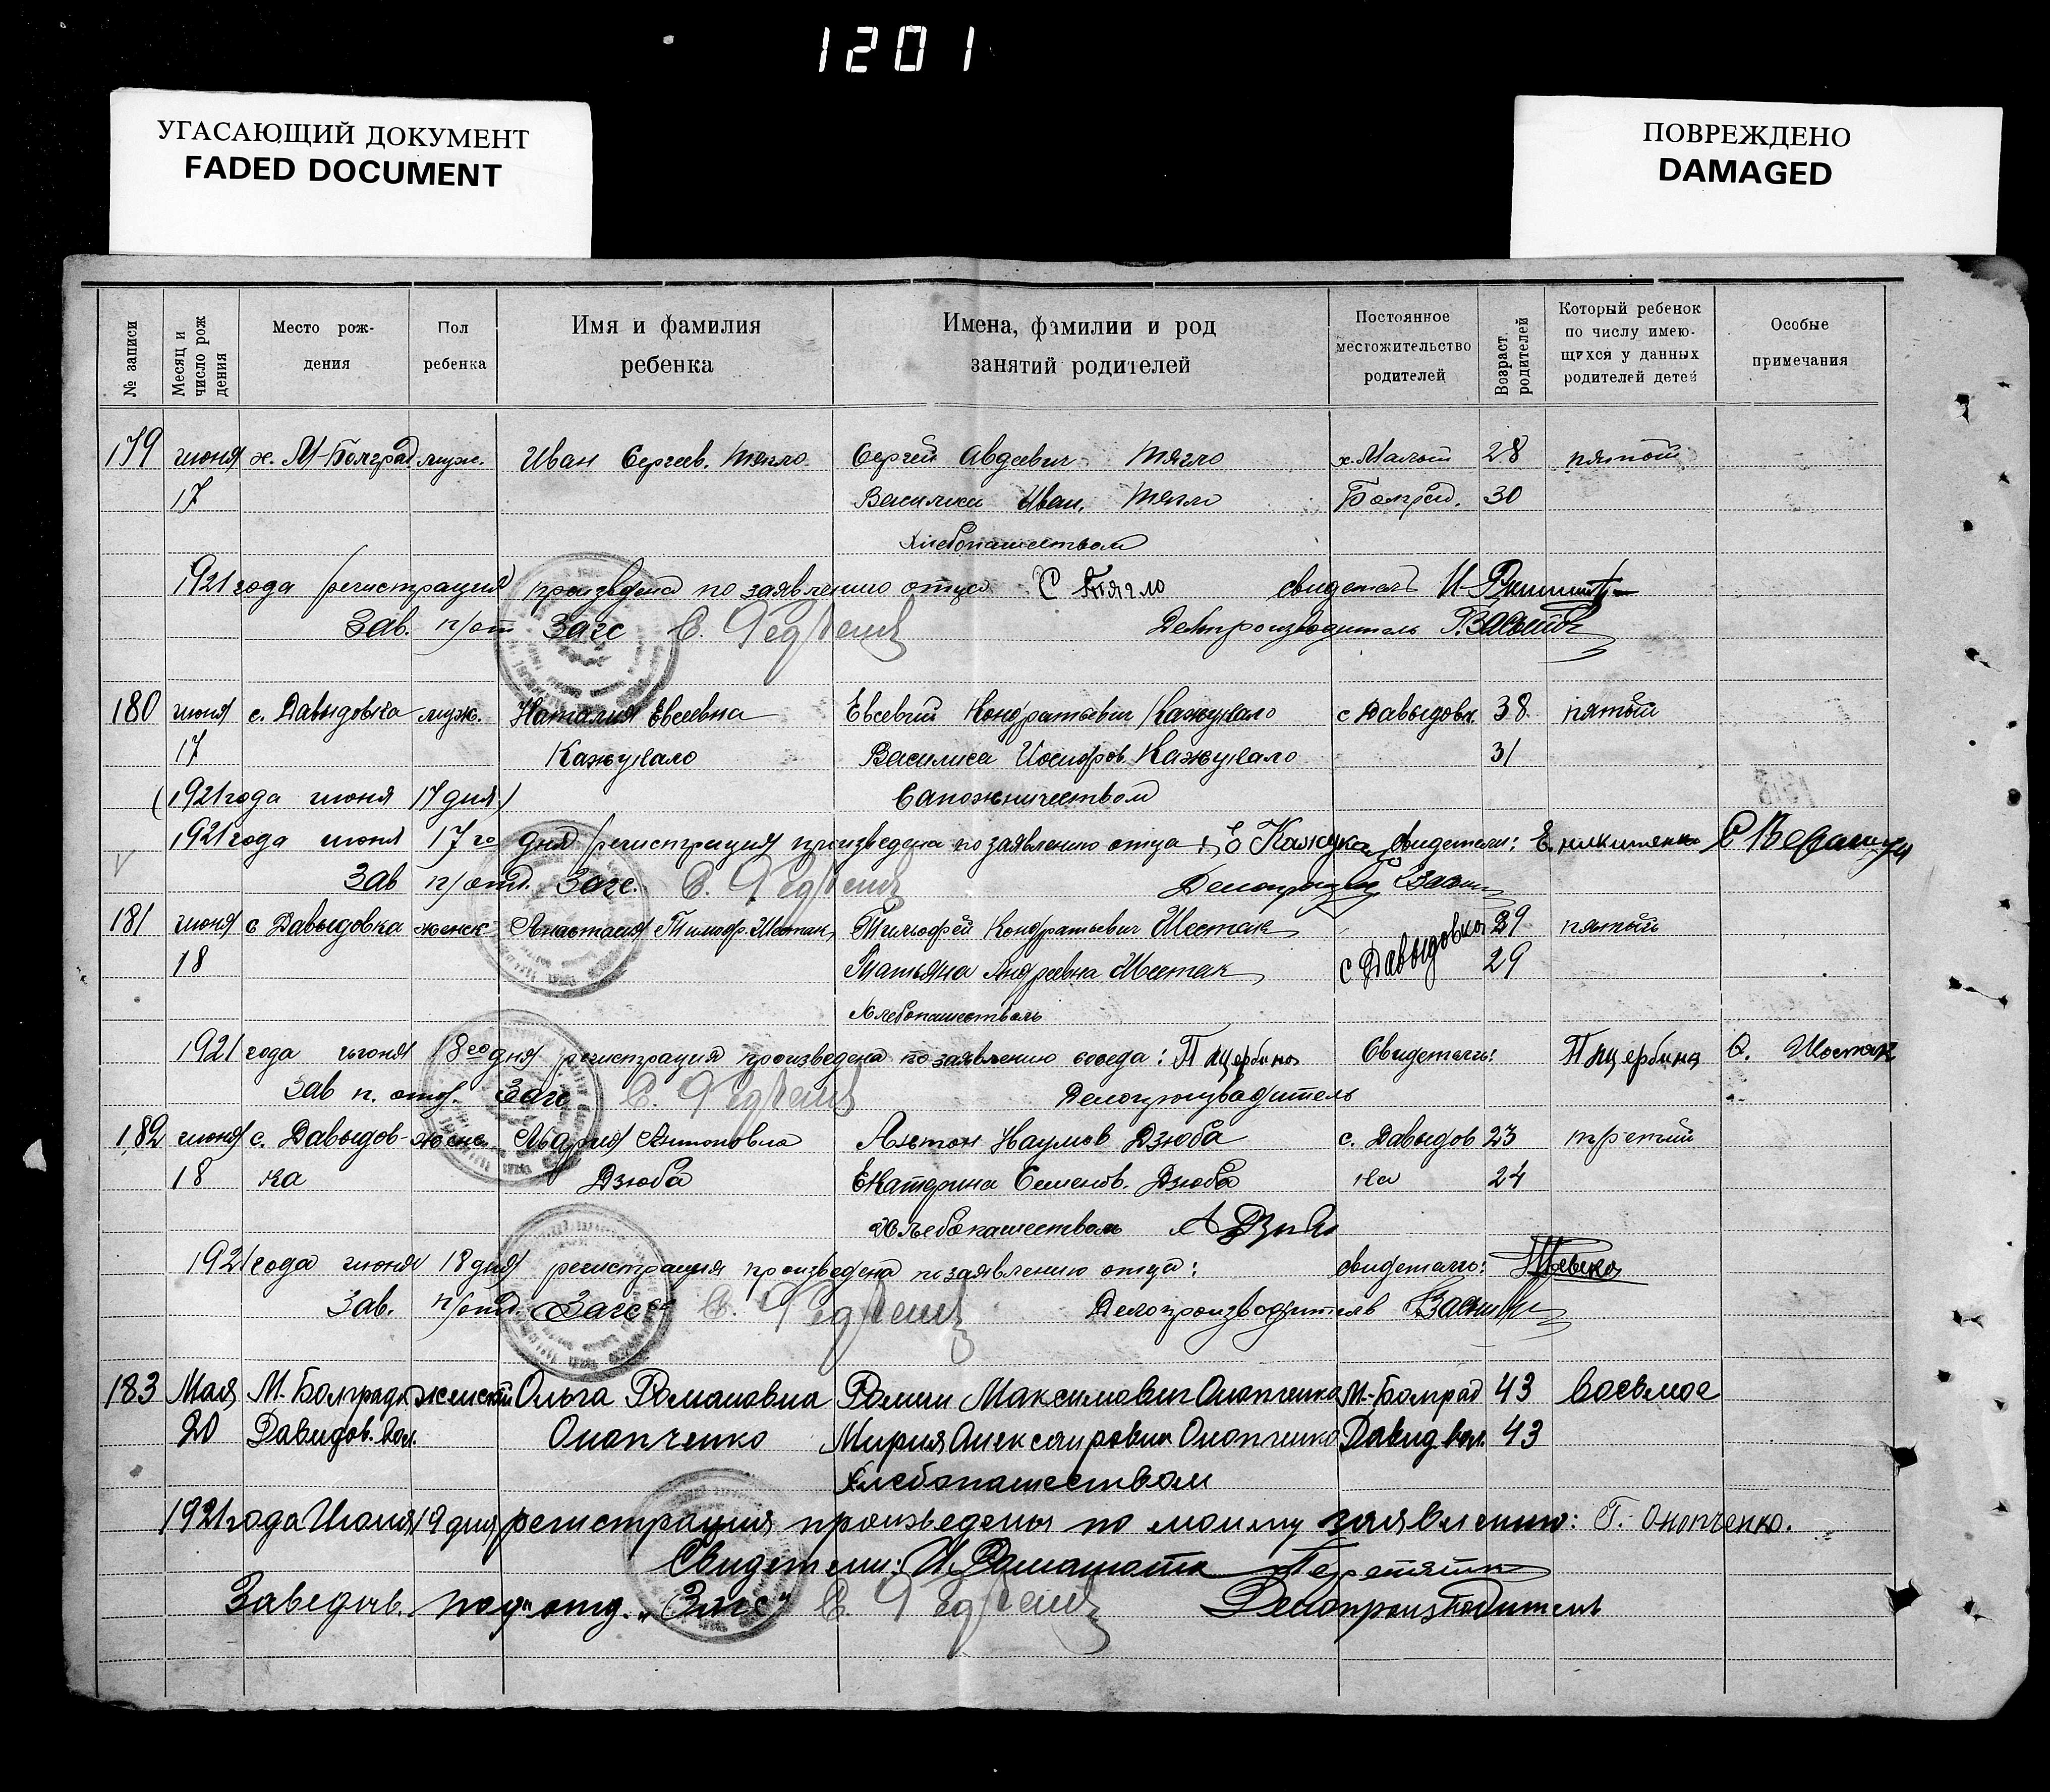 1201
УГАСАЮЩИЙ ДОКУМЕНТ
FADED DOCUMENT
ПОВРЕЖДЕНО
DAMAGED
№ записи
Месяц и число рождения
Место рождения
Пол ребенка
Имя и фамилия ребенка
Имена, фамилии и род занятий родителей
Постоянное местожительство родителей
Возраст родителей
Который ребенок по числу имеющихся у данных родителей детей
Особые примечания
179 июня х. М-Болград муж. Иван Сергеев. Тягло Сергей Авдеевич Тягло х. Малый 28 пятый
17 Иван. Тягло Болград. 30
Хлебопашеством
1921 года регистрация произведена по заявлению отца С Тягло свидетель И
Зав. п/от Загс Делопроизводитель
180 июня с. Давыдовка муж. Наталия Евсеевна Евсевий Кондратьевич с Давыдовк. 38 пятый
17 Василиса Иосифов. 31
(1921 года июня 17 дня) Сапожничеством
1921 года июня 17го дня регистрация произведена по заявлению отца: Свидетели: Е.
Зав п/отд. Загс.
181 июня с Давыдовка женск Анастасия Тимоф. Шостак Тимофей Кондратьевич Шостак с Давыдовка 29 пятый
18 Татьяна Андреевна Шостак 29
Хлебопашетволь
1921 года июня 18го дня регистрация произведена по заявлению соседа: П Щербина Свидетели: П Щербина Шостак
Зав п. отд. Загс Делопроизводитель
182 июня с. Давыдов- женс. Мария Антоновна Антон Наумов Дзюба с. Давыдов 23 третий
18 ка Дзюба Екатерина Семенов. Дзюба ка 24
Хлебопашеством А Дзюба
1921 года июня 18 дня регистрация произведена по заявлению отца: свидетели:
Зав. п/отд. Загс Делопроизводитель
183 Мая М.-Болград женский Ольга Романовна Роман Максимович Онопченко М.-Болград 43 восьмое
20 Давидов. вол. Онопченко Мария Александровна Онопченко Давид вол. 43
Хлебопашеством
1921 года Июня 19 дня регистрация произведена по моему заявлению: Онопченко.
Свидетели: И.
Заведыв. под-отд. „Загс" Делопроизводитель